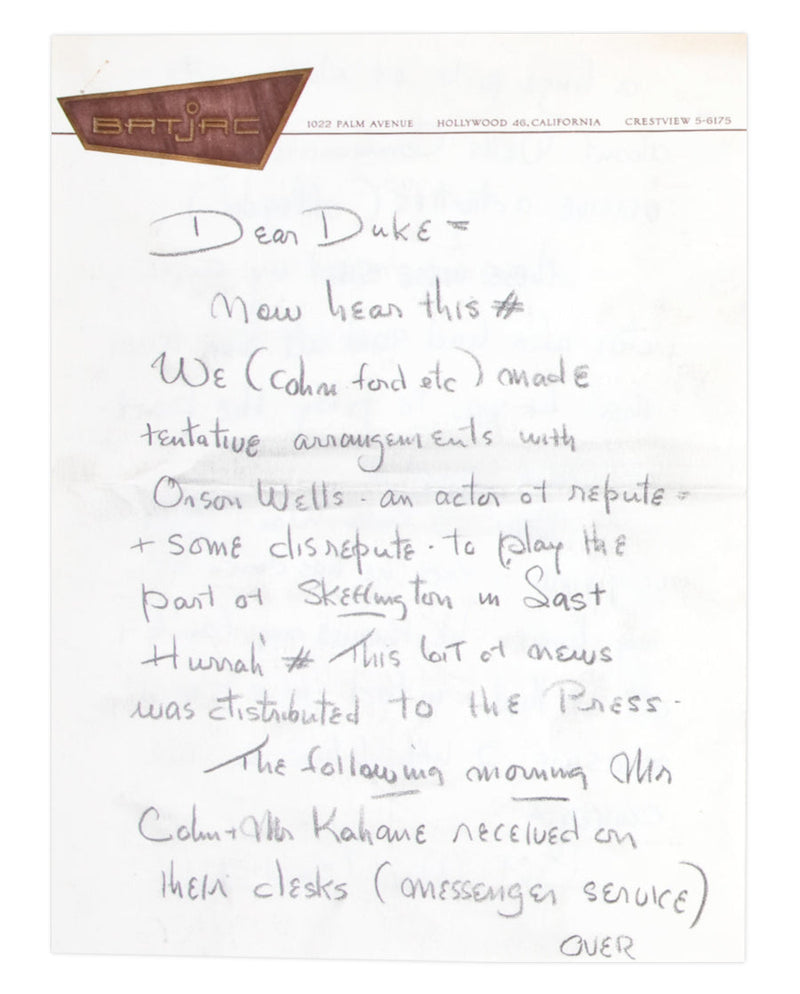 BATJAC
1022 PALM AVENUE HOLLYWOOD 46, CALIFORNIA CRESTVIEW 5-6175
Dear Duke =
Now hear this #
We (Cohn ford etc) made
tentative arrangements with
Orson Wells - an actor of repute =
+ some disrepute - to play the
part of Skeffington in Last
Hurrah # This bit of news
was distributed to the Press -
The following morning Mr
Cohn + Mr Kahane received on
their desks (messenger service)
OVER